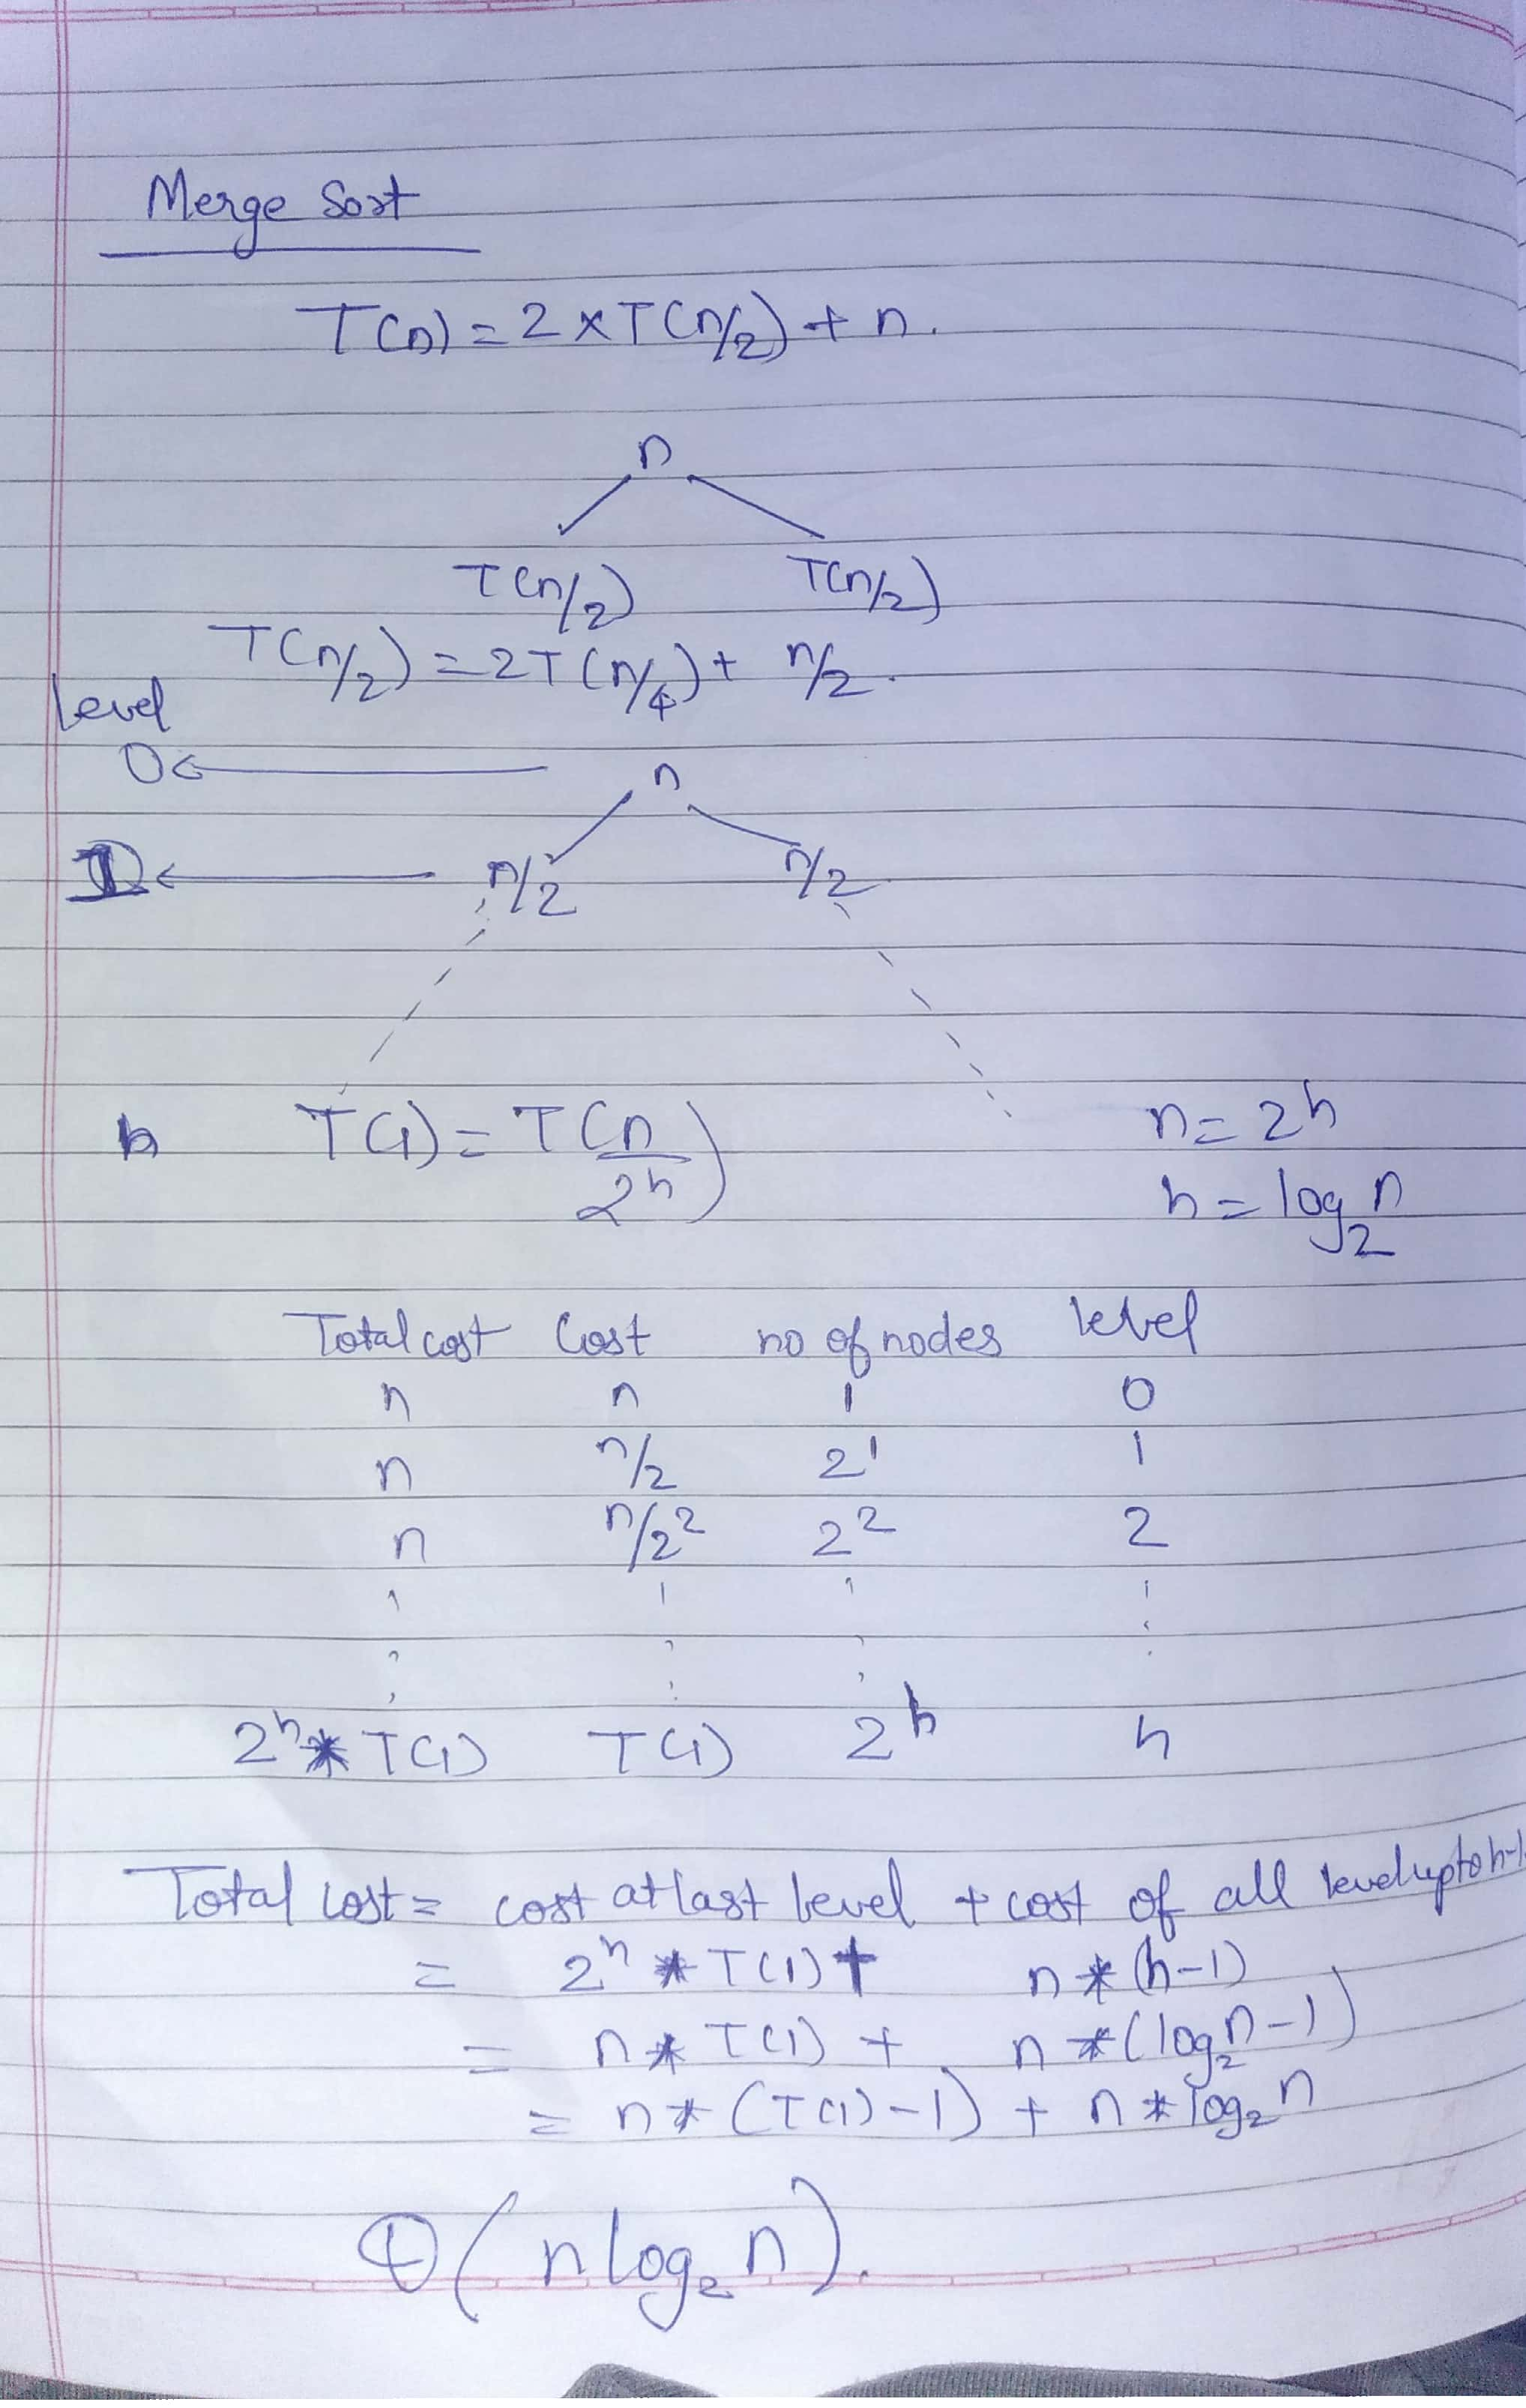 Merge Sort
T(n) = 2 x T(n/2) + n.
n
T(n/2) T(n/2)
T(n/2) = 2T(n/4) + n/2.
level
0 ← n
1 ← n/2 n/2
h T(1) = T(n/2^h) n = 2^h
h = log₂n
Total cost Cost no of nodes level
n n 1 0
n n/2 2¹ 1
n n/2² 2² 2
2^h * T(1) T(1) 2^h h
Total cost = cost at last level + cost of all level upto h-1
= 2^h * T(1) + n * (h-1)
= n * T(1) + n * (log₂n - 1)
= n * (T(1) - 1) + n * log₂n
Θ(n log₂n).